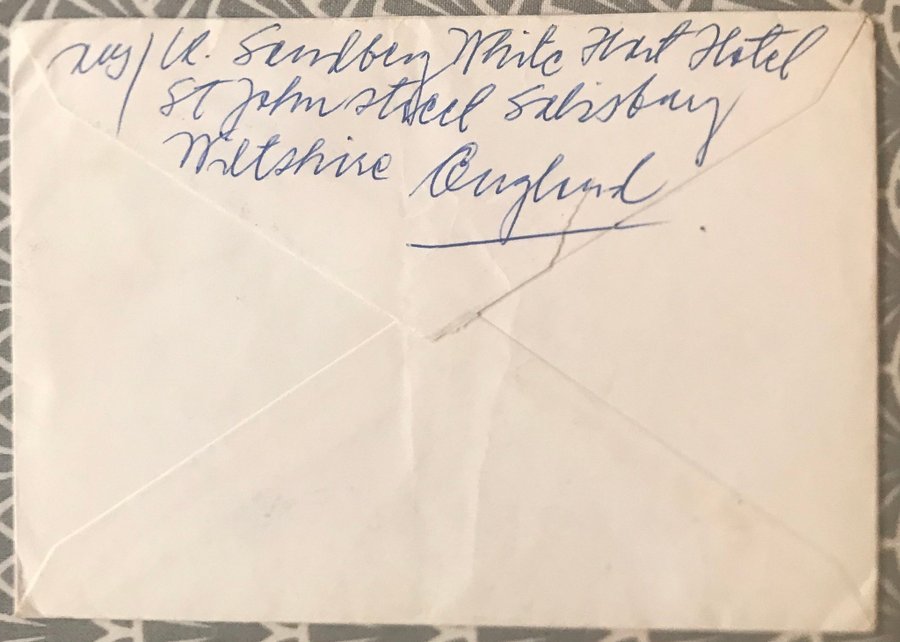 / R. Sandberg White Hart Hotel
St John Street Salisbury
Wiltshire England